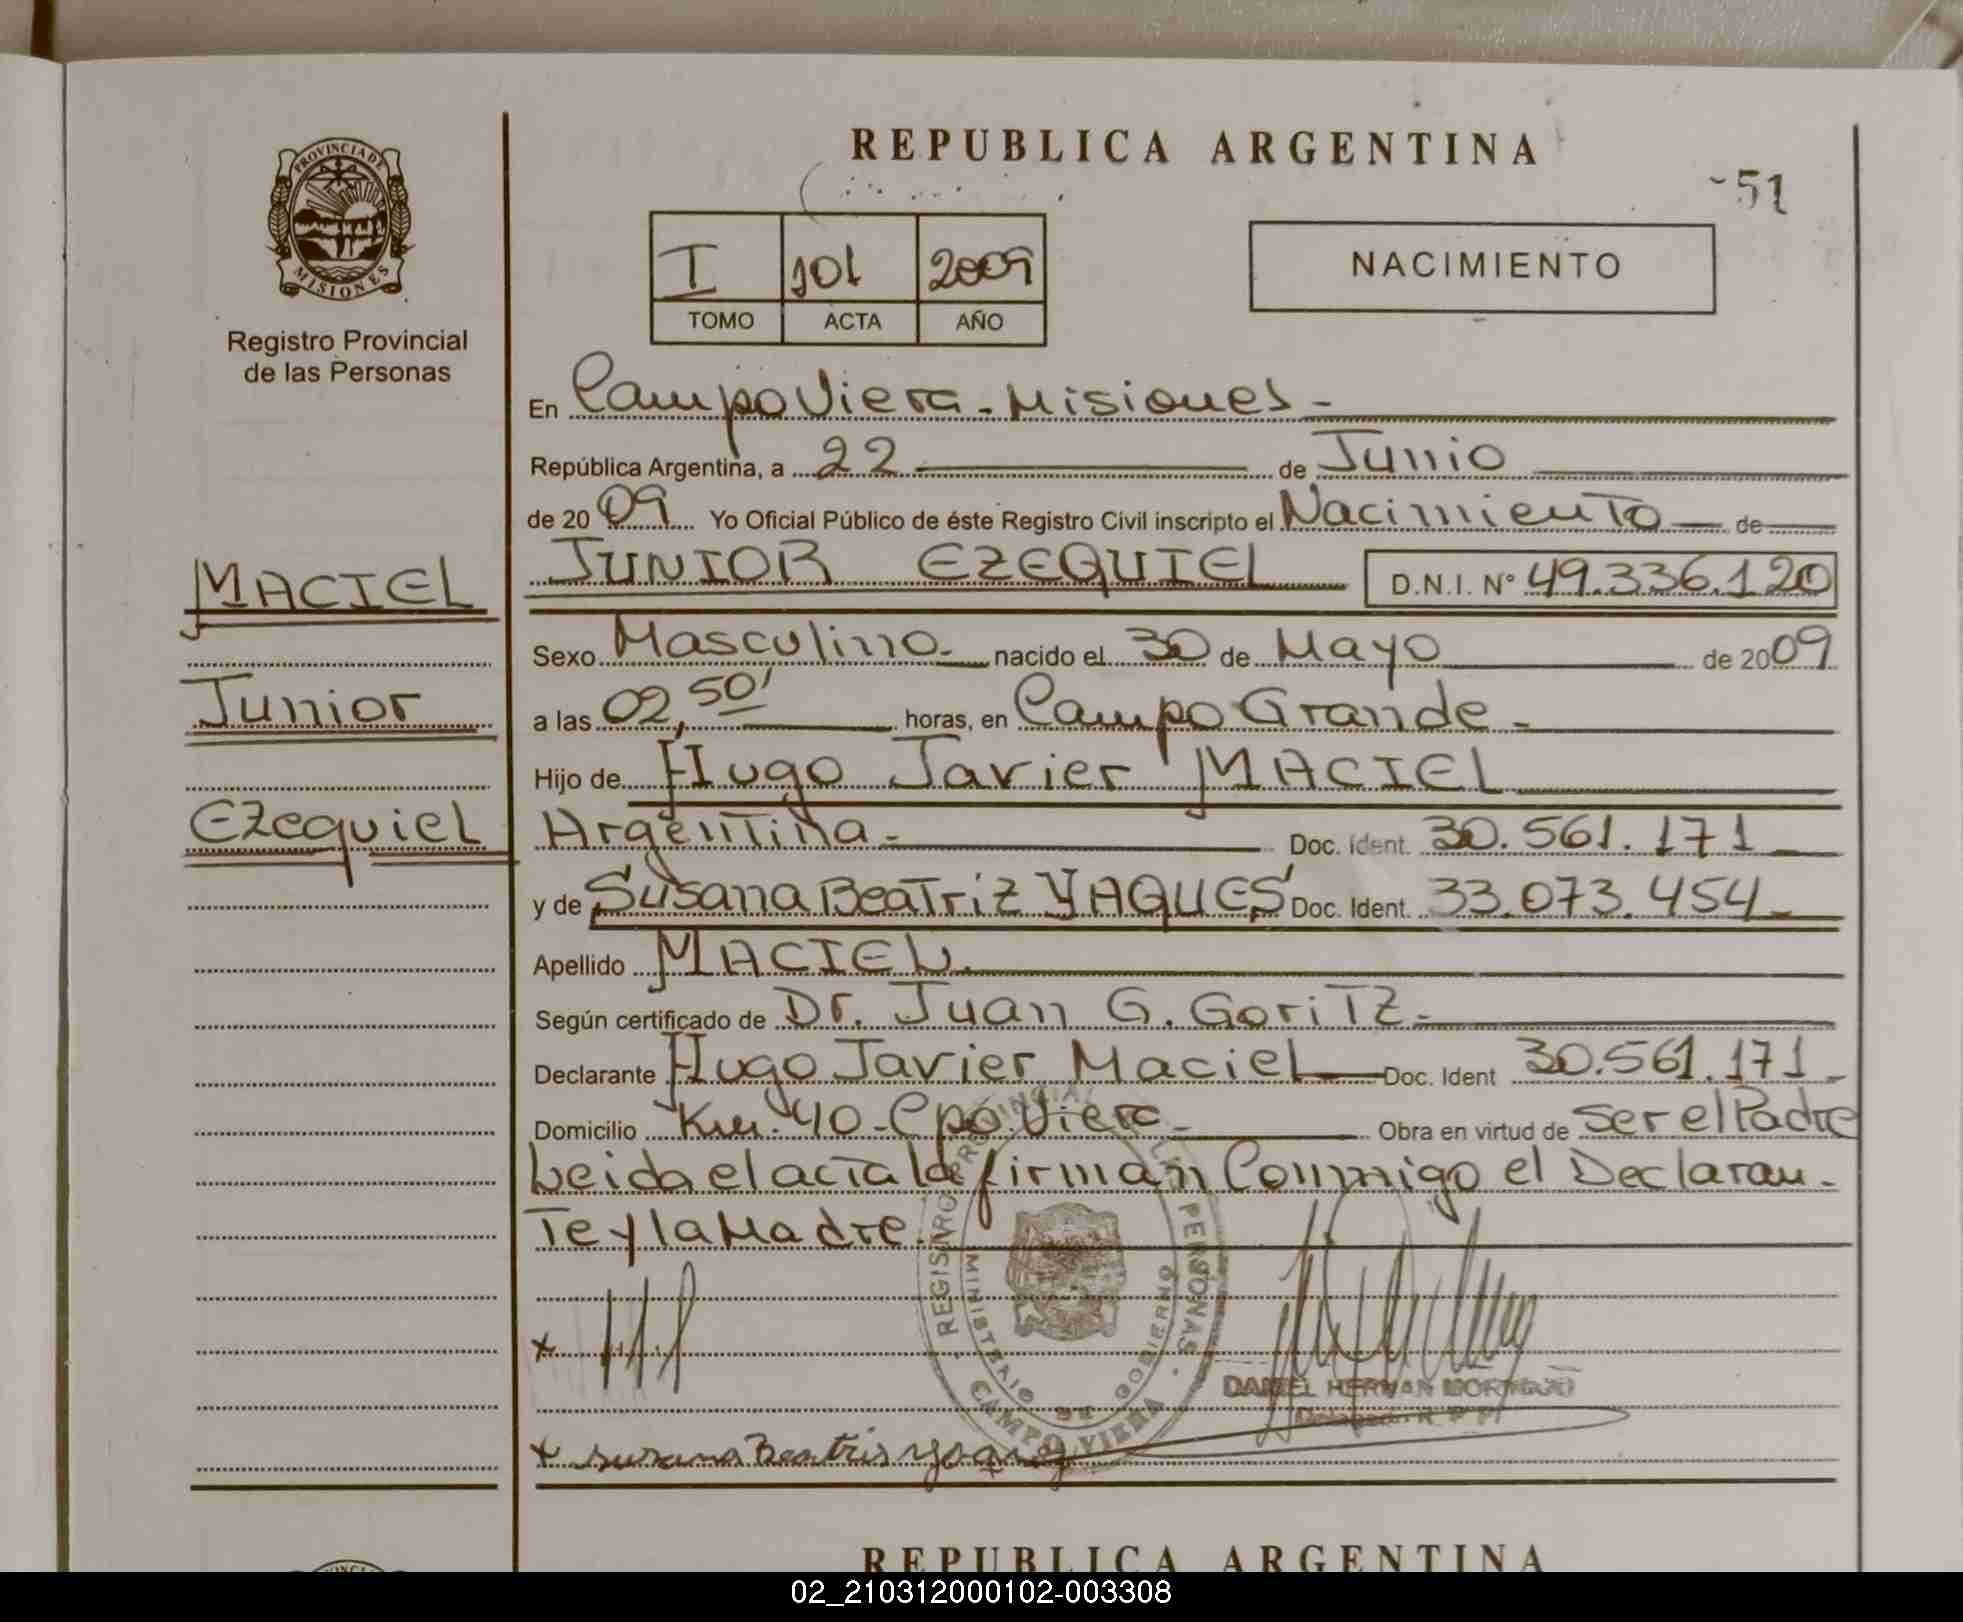 REPUBLICA ARGENTINA
51
PROVINCIA DE
MISIONES
Registro Provincial
de las Personas
I 101 2009
TOMO ACTA AÑO
NACIMIENTO
En Campo Viera - Misiones -
República Argentina, a 22 de Junio
de 2009 Yo Oficial Público de éste Registro Civil inscripto el Nacimiento de
MACIEL
JUNIOR EZEQUIEL D.N.I. N° 49.336.120
Sexo Masculino - nacido el 30 de Mayo de 2009
Junior
a las 02,50' horas, en Campo Grande -
Hijo de Hugo Javier MACIEL
Ezequiel
Argentina - Doc. Ident. 30.561.171
y de Susana Beatriz YAQUES Doc. Ident. 33.073.454
Apellido MACIEL
Según certificado de Dr. Juan G. Goritz -
Declarante Hugo Javier Maciel Doc. Ident 30.561.171
Domicilio Km. 40 - Cpo Viera - Obra en virtud de ser el Padre
Leida el acta la firman Conmigo el Declaran-
te y la Madre.
REGISTRO PROVINCIAL LAS PERSONAS
MINISTERIO DE GOBIERNO
CAMPO VIERA
x
DANIEL HERNAN
x Susana Beatris
REPUBLICA ARGENTINA
02_210312000102-003308